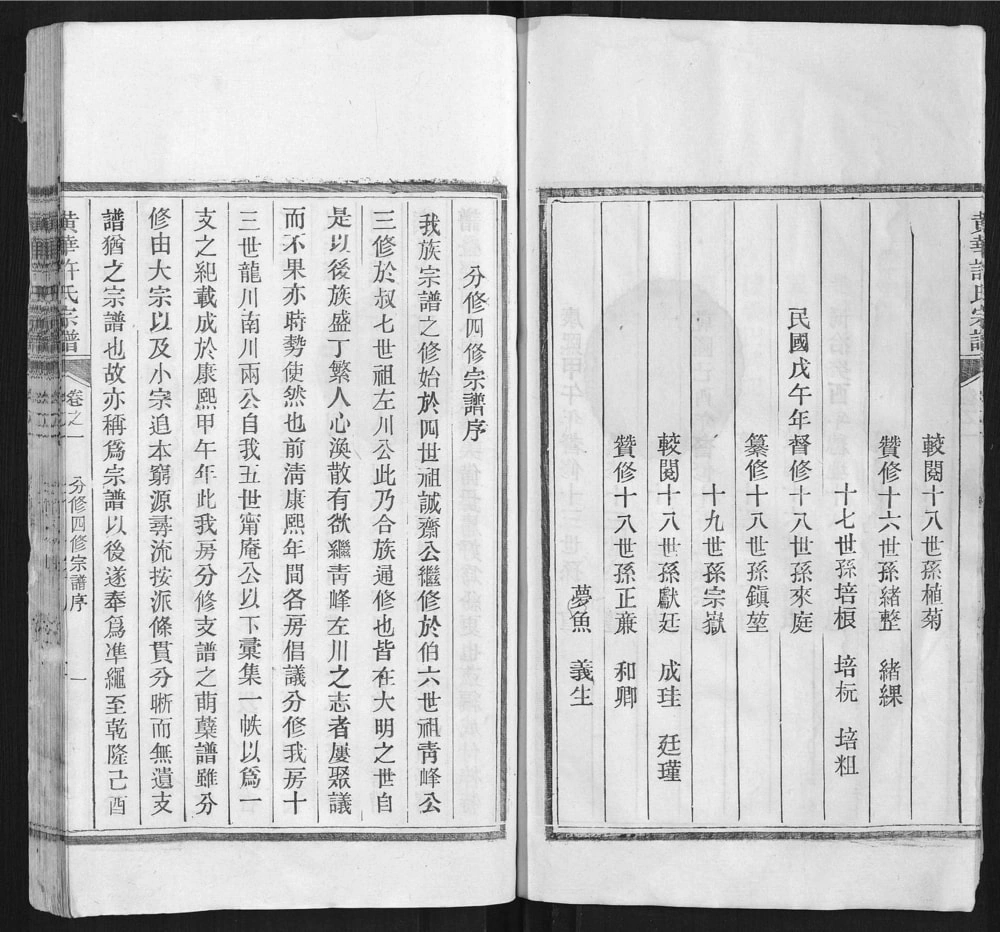 黃華許氏宗譜
較閱十八世孫植菊
贊修十六世孫緒整 緒綶
十七世孫培根 培杬 培粗
民國戊午年督修十八世孫來庭
纂修十八世孫鎭堃
十九世孫宗嶽
較閱十八世孫獻廷 成珪 廷瑾
贊修十八世孫正蔗 和卿
夢魚 義生
分修四修宗譜序
我族宗譜之修始於四世祖誠齋公繼修於伯六世祖靑峰公
三修於叔七世祖左川公此乃合族通修也皆在大明之世自
是以後族盛丁繁人心渙散有欲繼靑峰左川之志者屢聚議
而不果亦時勢使然也前淸康熙年間各房倡議分修我房十
三世龍川南川兩公自我五世甯庵公以下彙集一帙以爲一
支之紀載成於康熙甲午年此我房分修支譜之萌蘗譜雖分
修由大宗以及小宗追本窮源尋流按派條貫分晰而無遺支
譜猶之宗譜也故亦稱爲宗譜以後遂奉爲準繩至乾隆己酉
黃華許氏宗譜
卷之一
分修四修宗譜序
一